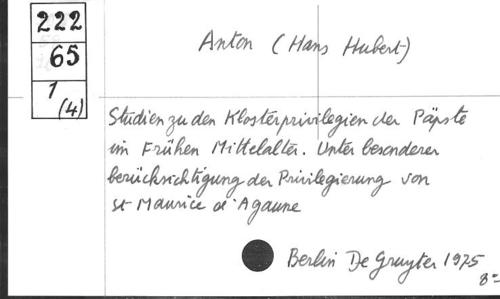 222
65
1
(4)
Anton (Hans Hubert)
Studien zu den Klosterprivilegien der Päpste
im Frühen Mittelalter. Unter besonderer
berücksichtigung der Privilegierung von
St Maurice d'Agaune
Berlin De Gruyter 1975
8°